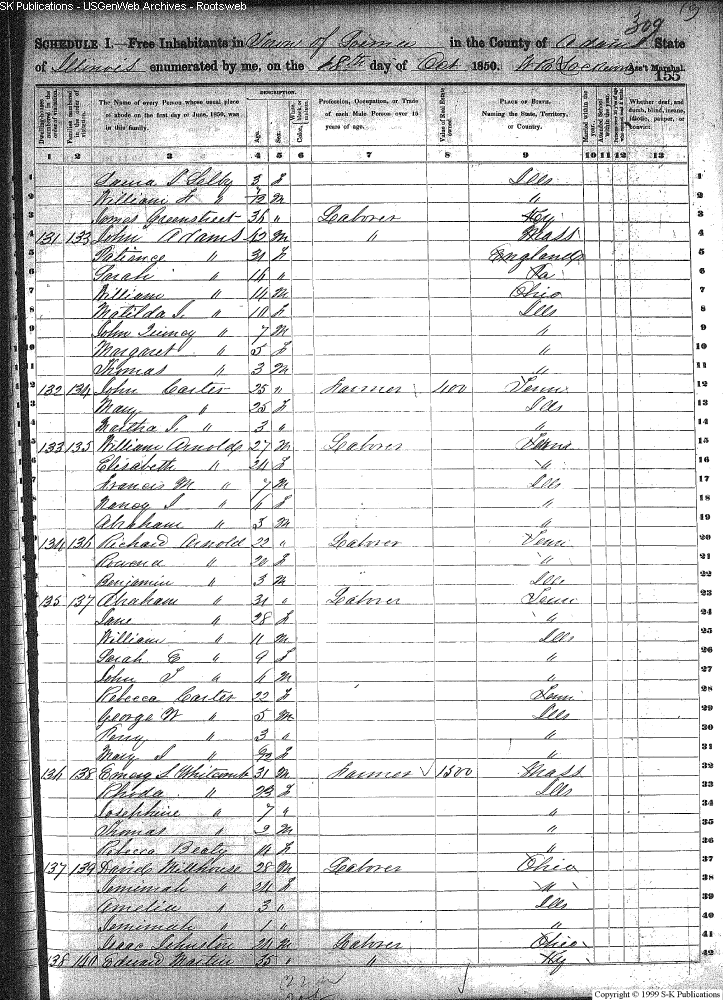 SK Publications - USGenWeb Archives - Rootsweb
309
SCHEDULE I.—Free Inhabitants in Town of in the County of Adams State
of Illinois enumerated by me, on the 18th day of Oct 1850. Ass't Marshal.
155
DESCRIPTION.
Dwelling-houses numbered in the order of visitation.
Families numbered in the order of visitation.
The Name of every Person whose usual place of abode on the first day of June, 1850, was in this family.
Age.
Sex.
White, black, or mulatto.
Color,
Profession, Occupation, or Trade of each Male Person over 15 years of age.
Value of Real Estate owned.
PLACE OF BIRTH. Naming the State, Territory, or Country.
Married within the year.
Attended School within the year.
Whether deaf and dumb, blind, insane, idiotic, pauper, or convict.
1 2 3 4 5 6 7 8 9 10 11 12 13
1 Selby 3 f Ills 1
2 William H " m " 2
3 James Greenstreet 36 " Laborer Ky 3
4 131 133 John Adams 42 m " Mass 4
5 Patience " 31 f England 5
6 Sarah " 16 " 6
7 William " 14 m Ohio 7
8 Matilda J. " 10 f Ills 8
9 John Quincy " 7 m " 9
10 Margaret " 5 f " 10
11 Thomas " 3 m " 11
12 132 134 John Carter 25 " Farmer 400 Tenn 12
13 Mary " 25 f Ills 13
14 Martha J. " 3 " " 14
15 133 135 William Arnold 27 m Laborer Tenn 15
16 Elisabeth " 24 f " 16
17 Francis M " 7 m Ills 17
18 Nancy J " 6 f " 18
19 Abraham " 3 m " 19
20 134 136 Richard Arnold 22 " Laborer Tenn 20
21 Rowena " 20 f " 21
22 Benjamin " 3 m Ills 22
23 135 137 Abraham " 31 " Laborer Tenn 23
24 Jane " 28 f " 24
25 William " 11 m Ills 25
26 Sarah E " 9 f " 26
27 John T " 6 m " 27
28 Rebecca Carter 22 f Tenn 28
29 George W " 5 m Ills 29
30 Perry " 3 " " 30
31 Mary J " f " 31
32 136 138 Emery S Whitcomb 31 m Farmer 1500 Mass 32
33 Rhoda " 23 f Ills 33
34 Josephine " 7 " " 34
35 Thomas " 2 m " 35
36 Rebecca Beaty 14 f " 36
37 137 139 David Millhouse 28 m Laborer Ohio 37
38 Jemimah " 24 f " 38
39 Amelia " 3 " Ills 39
40 Jemimah " 1 " " 40
41 Isaac Johnston 24 m Laborer Ohio 41
42 138 140 Edward Martin 35 " " Ky 42
Copyright © 1999 S-K Publications